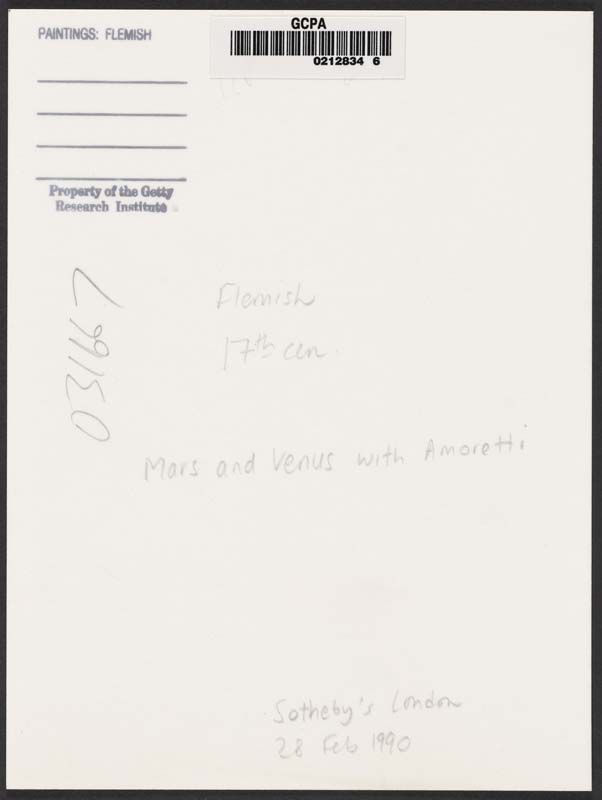 PAINTINGS: FLEMISH
GCPA
0212834 6
Property of the Getty
Research Institute
031667
Flemish
17th cen.
Mars and Venus with Amoretti
Sotheby's London
28 Feb 1990